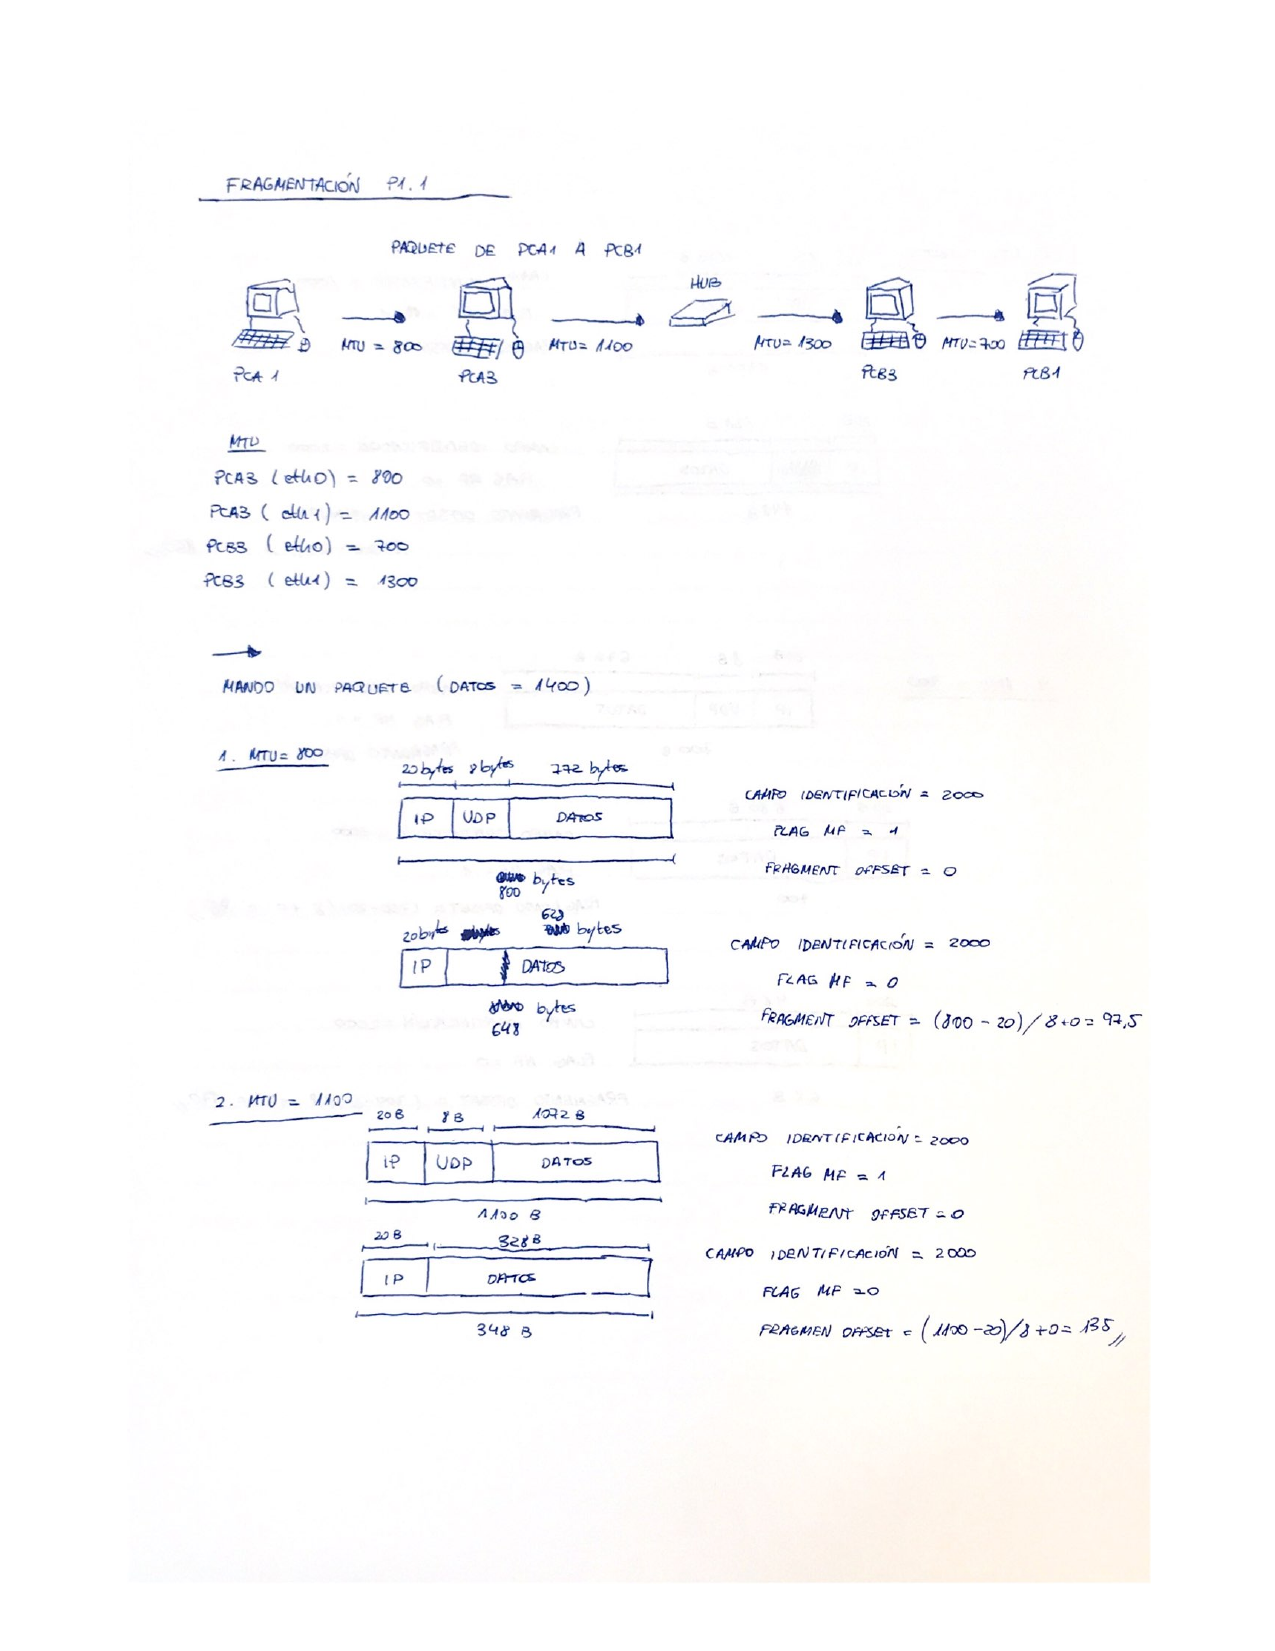 FRAGMENTACIÓN P1.1
PAQUETE DE PCA1 A PCB1
HUB
MTU = 800 MTU = 1100 MTU = 1300 MTU = 700
PCA 1 PCA3 PCB3 PCB1
MTU
PCA3 (eth0) = 800
PCA3 (eth1) = 1100
PCB3 (eth0) = 700
PCB3 (eth1) = 1300
MANDO UN PAQUETE (DATOS = 1400)
1. MTU = 800
20 bytes 8 bytes 772 bytes
IP UDP DATOS
bytes
800
CAMPO IDENTIFICACIÓN = 2000
FLAG MF = 1
FRAGMENT OFFSET = 0
628
20 bytes bytes
IP DATOS
bytes
648
CAMPO IDENTIFICACIÓN = 2000
FLAG MF = 0
FRAGMENT OFFSET = (800 - 20) / 8 + 0 = 97,5
2. MTU = 1100
20 B 8 B 1072 B
IP UDP DATOS
1100 B
CAMPO IDENTIFICACIÓN = 2000
FLAG MF = 1
FRAGMENT OFFSET = 0
20 B 328 B
IP DATOS
348 B
CAMPO IDENTIFICACIÓN = 2000
FLAG MF = 0
FRAGMEN OFFSET = (1100 - 20) / 8 + 0 = 135